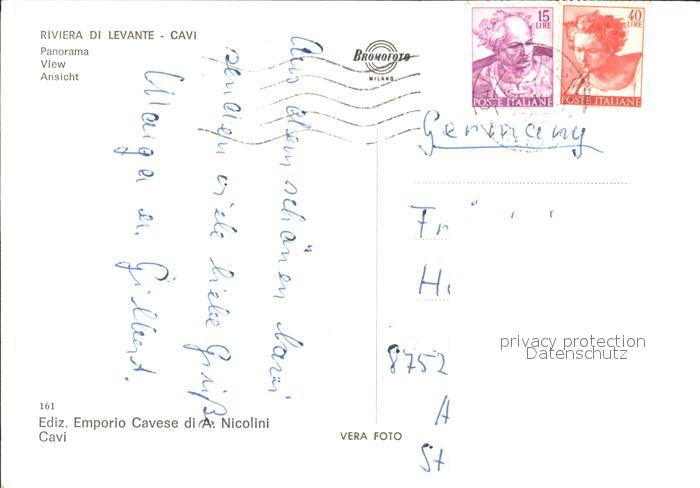 RIVIERA DI LEVANTE - CAVI
Panorama
View
Ansicht
BROMOFOTO
MILANO
15
LIRE
POSTE ITALIANE
40
LIRE
POSTE ITALIANE
Germany
Aus dem schönen
senden viele liebe Grüße
Marga u. Gilbert.
8752
A
St
privacy protection
Datenschutz
161
Ediz. Emporio Cavese di A. Nicolini
Cavi
VERA FOTO